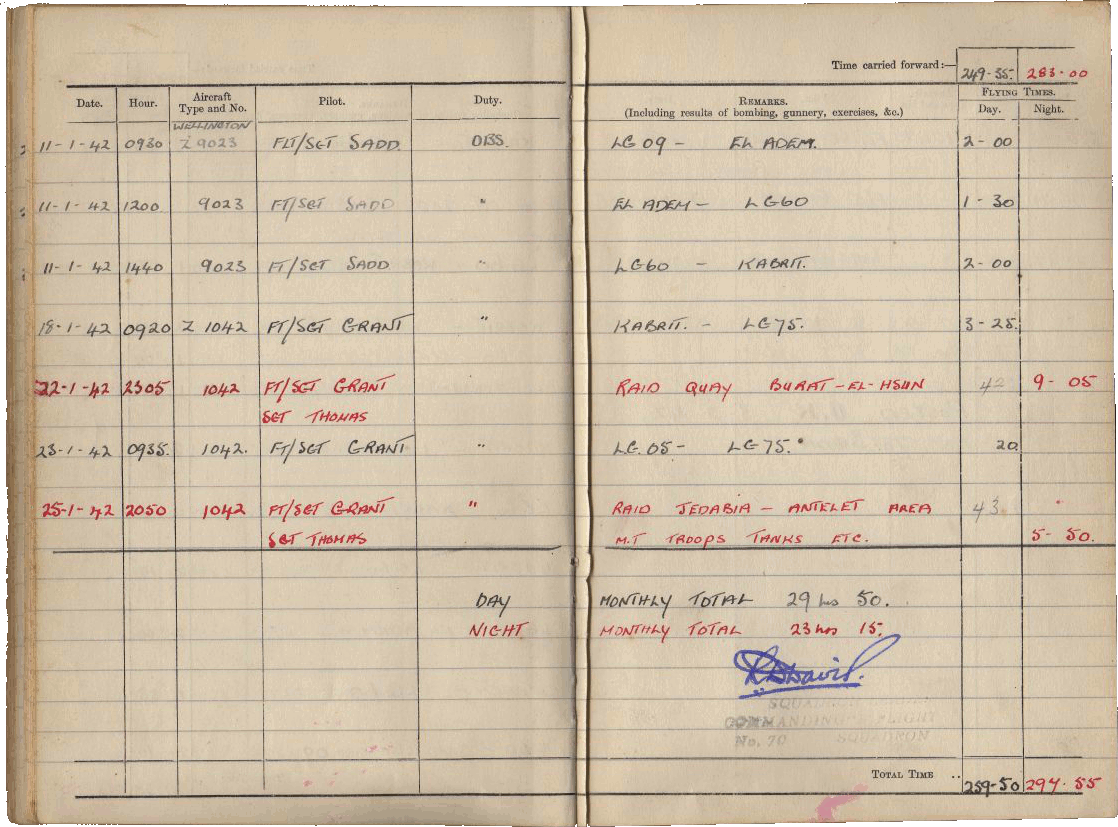 Time carried forward:— 249-35. 283-00
Date. Hour. Aircraft Type and No. Pilot. Duty. REMARKS. (Including results of bombing, gunnery, exercises, &c.) FLYING TIMES. Day. Night.
WELLINGTON
11-1-42 0930 Z 9023 FLT/SGT SADD OBS. LG 09 - EL ADEM. 2-00
11-1-42 1200 9023 FT/SGT SADD " EL ADEM - LG60 1-30
11-1-42 1440 9023 FT/SGT SADD " LG60 - KABRIT. 2-00
18-1-42 0920 Z 1042 FT/SGT GRANT " KABRIT. - LG75. 3-25.
22-1-42 2305 1042 FT/SGT GRANT RAID QUAY BURAT-EL-HSUN 42 9-05
SGT THOMAS
23-1-42 0935. 1042. FT/SGT GRANT " LG.05 - LG75. 20
25-1-42 2050 1042 FT/SGT GRANT " RAID JEDABIA - ANTELET AREA 43
SGT THOMAS M.T TROOPS TANKS ETC. 5-50.
DAY MONTHLY TOTAL 29 hrs 50.
NIGHT MONTHLY TOTAL 23 hrs 15.
SQUADRON LEADER
COMMANDING FLIGHT
No. 70 SQUADRON
TOTAL TIME .. 259-50 297-55